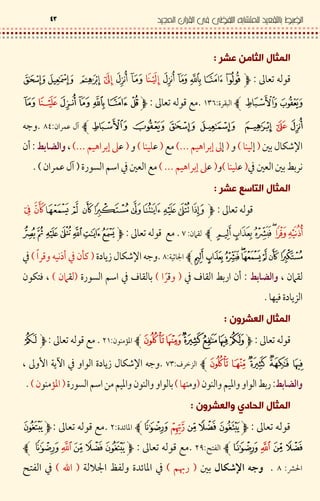 الضبط بالتقعيد للمتشابه اللفظي في القرآن المجيد
٤٣
المثال الثامن عشر :
قوله تعالى : ﴿ قُولُوٓا۟ ءَامَنَّا بِٱللَّهِ وَمَآ أُنزِلَ إِلَيْنَا وَمَآ أُنزِلَ إِلَىٰٓ إِبْرَٰهِـۧمَ وَإِسْمَٰعِيلَ وَإِسْحَٰقَ
وَيَعْقُوبَ وَٱلْأَسْبَاطِ ﴾ البقرة:١٣٦ .مع قوله تعالى : ﴿ قُلْ ءَامَنَّا بِٱللَّهِ وَمَآ أُنزِلَ عَلَيْنَا وَمَآ
أُنزِلَ عَلَىٰٓ إِبْرَٰهِيمَ وَإِسْمَٰعِيلَ وَإِسْحَٰقَ وَيَعْقُوبَ وَٱلْأَسْبَاطِ ﴾ آل عمران:٨٤ .وجه
الإشكال بين ( إلينا ) و ( إلى إبراهيم ...) مع ( علينا ) و ( على إبراهيم ...) ، والضابط : أن
نربط بين العين في( علينا )و( على إبراهيم ... ) مع العين في اسم السورة ( آل عمران ) .
المثال التاسع عشر :
قوله تعالى : ﴿ وَإِذَا تُتْلَىٰ عَلَيْهِ ءَايَٰتُنَا وَلَّىٰ مُسْتَكْبِرًا كَأَن لَّمْ يَسْمَعْهَا كَأَنَّ فِىٓ
أُذُنَيْهِ وَقْرًا ۖ فَبَشِّرْهُ بِعَذَابٍ أَلِيمٍ ﴾ لقمان: ٧ . مع قوله تعالى : ﴿ يَسْمَعُ ءَايَٰتِ ٱللَّهِ تُتْلَىٰ عَلَيْهِ ثُمَّ يُصِرُّ
مُسْتَكْبِرًا كَأَن لَّمْ يَسْمَعْهَا ۖ فَبَشِّرْهُ بِعَذَابٍ أَلِيمٍ ﴾ الجاثية:٨ .وجه الإشكال زيادة ( كأن في أذنيه وقراً ) في
لقمان ، والضابط : أن اربط القاف في ( وقرًا ) بالقاف في اسم السورة (لقمان ) ، فتكون
الزيادة فيها .
المثال العشرون :
قوله تعالى : ﴿ وَلَكُمْ فِيهَا مَنَٰفِعُ كَثِيرَةٌ وَمِنْهَا تَأْكُلُونَ ﴾ المؤمنون:٢١ . مع قوله تعالى : ﴿ لَكُمْ
فِيهَا فَٰكِهَةٌ كَثِيرَةٌ مِّنْهَا تَأْكُلُونَ ﴾ الزخرف:٧٣ .وجه الإشكال زيادة الواو في الآية الأولى ،
والضابط: ربط الواو والميم والنون (ومنها ) بالواو والنون والميم من اسم السورة ( المؤمنون ) .
المثال الحادي والعشرون :
قوله تعالى : ﴿ يَبْتَغُونَ فَضْلًا مِّن رَّبِّهِمْ وَرِضْوَٰنًا ﴾ المائدة:٢ .مع قوله تعالى : ﴿ يَبْتَغُونَ
فَضْلًا مِّنَ ٱللَّهِ وَرِضْوَٰنًا ﴾ الفتح:٢٩ .مع قوله تعالى : ﴿ يَبْتَغُونَ فَضْلًا مِّنَ ٱللَّهِ وَرِضْوَٰنًا ﴾
الحشر: ٨ . وجه الإشكال بين ( ربهم ) في المائدة ولفظ الجلالة ( الله ) في الفتح